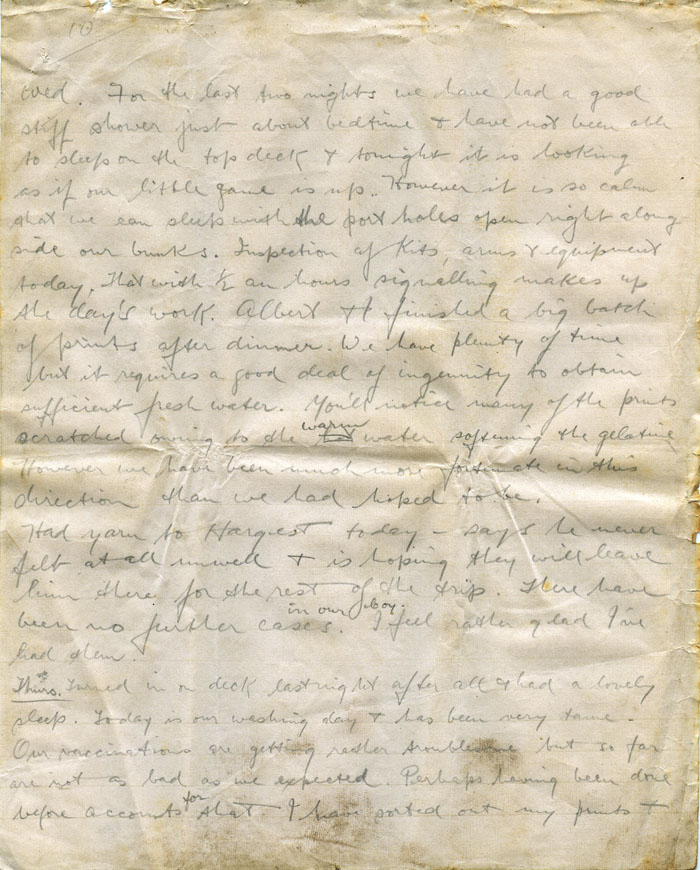 10
eved. For the last two nights we have had a good
stiff shower just about bedtime & have not been able
to sleep on the top deck & tonight it is looking
as if our little game is up. However it is so calm
that we can sleep with the port holes open right along
side our bunks. Inspection of Kits, arms & equipment
today. That with 1/2 an hours signalling makes up
the day's work. Albert & I finished a big batch
of prints after dinner. We have plenty of time
but it requires a good deal of ingenuity to obtain
sufficient fresh water. You'll notice many of the prints
scratched owing to the warm water softening the gelatine
However we have been much more fortunate in this
direction than we had hoped to be.
Had yarn to Hargest today - says he never
felt at all unwell & is hoping they will leave
him there for the rest of the trip. There have
been no further cases in our Coy. I feel rather glad I've
had them.
Thurs. Turned in on deck last night after all & had a lovely
sleep. Today is our washing day & has been very tame.
Our vaccinations are getting rather troublesome but so far
are not as bad as we expected. Perhaps having been done
before accounts for that. I have sorted out my prints &